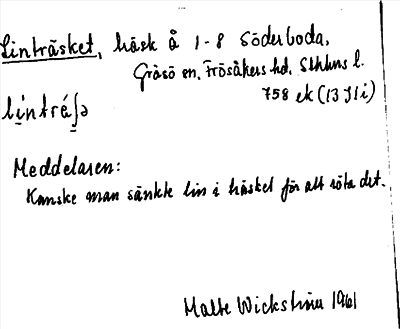 Linträsket, träsk å 1-8 Söderboda,
Gräsö sn, Frösåkers hd, Sthlms l.
758 ek (13 I 1 i)
lintré
Meddelaren:
Kanske man sänkte lin i träsket för att röta det.
Malte Wickström 1961